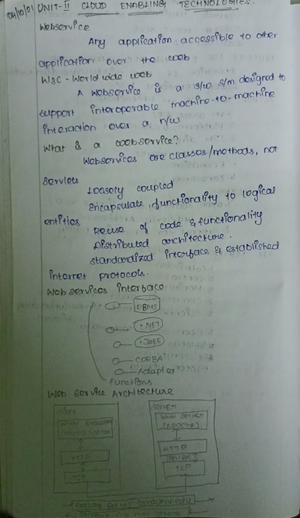 UNIT-II CLOUD ENABLING TECHNOLOGIES.
Webservice
Any application accessible to other
application over the web
W3C - World wide web
A webservice is a s/w s/m designed to
support interoperable machine-to-machine
interaction over a n/w
What is a webservice?
Webservices are classes/methods, not
servlets
Loosely coupled
Encapsulate functionality to logical
entities
Reuse of code & functionality
Distributed architecture.
standardized interface & established
internet protocols.
Web services Interface
DBMS
.NET
J2EE
CORBA
Adapter
Functions
Web Service Architecture
HTTP
TCP